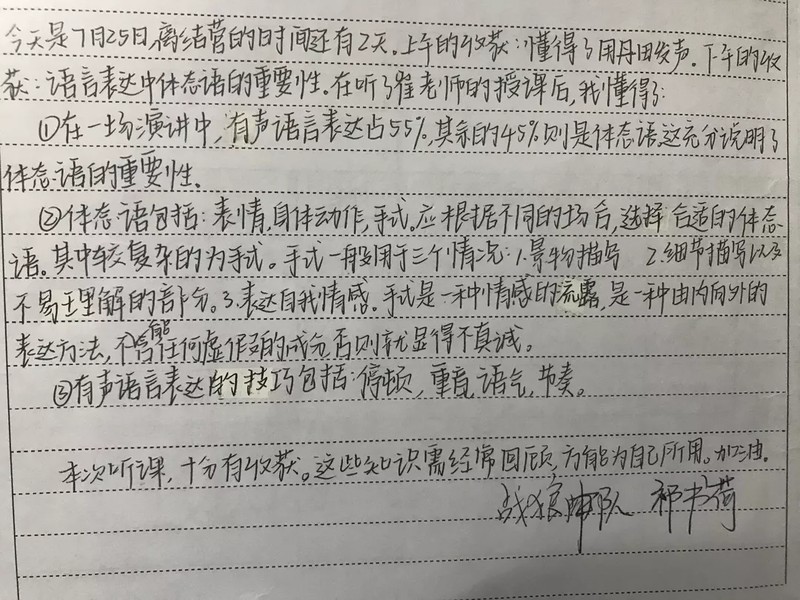 今天是7月25日,离结营的时间还有2天。上午的收获:懂得了用丹田发声。下午的收
获:语言表达中体态语的重要性。在听了崔老师的授课后,我懂得了:
①在一场演讲中,有声语言表达占55%,其余的45%则是体态语,这充分说明了
体态语的重要性。
②体态语包括:表情,身体动作,手式。应根据不同的场合,选择合适的体态
语。其中较复杂的为手式。手式一般用于三个情况:1.景物描写 2.细节描写以及
不易理解的部分。3.表达自我情感。手式是一种情感的流露,是一种由内向外的
表达方法,不能含任何虚假的成分,否则就显得不真诚。
③有声语言表达的技巧包括:停顿,重音,语气,节奏。
本次听课,十分有收获。这些知识需经常回顾,方能为自己所用。加油。
战狼中队 祁书荷